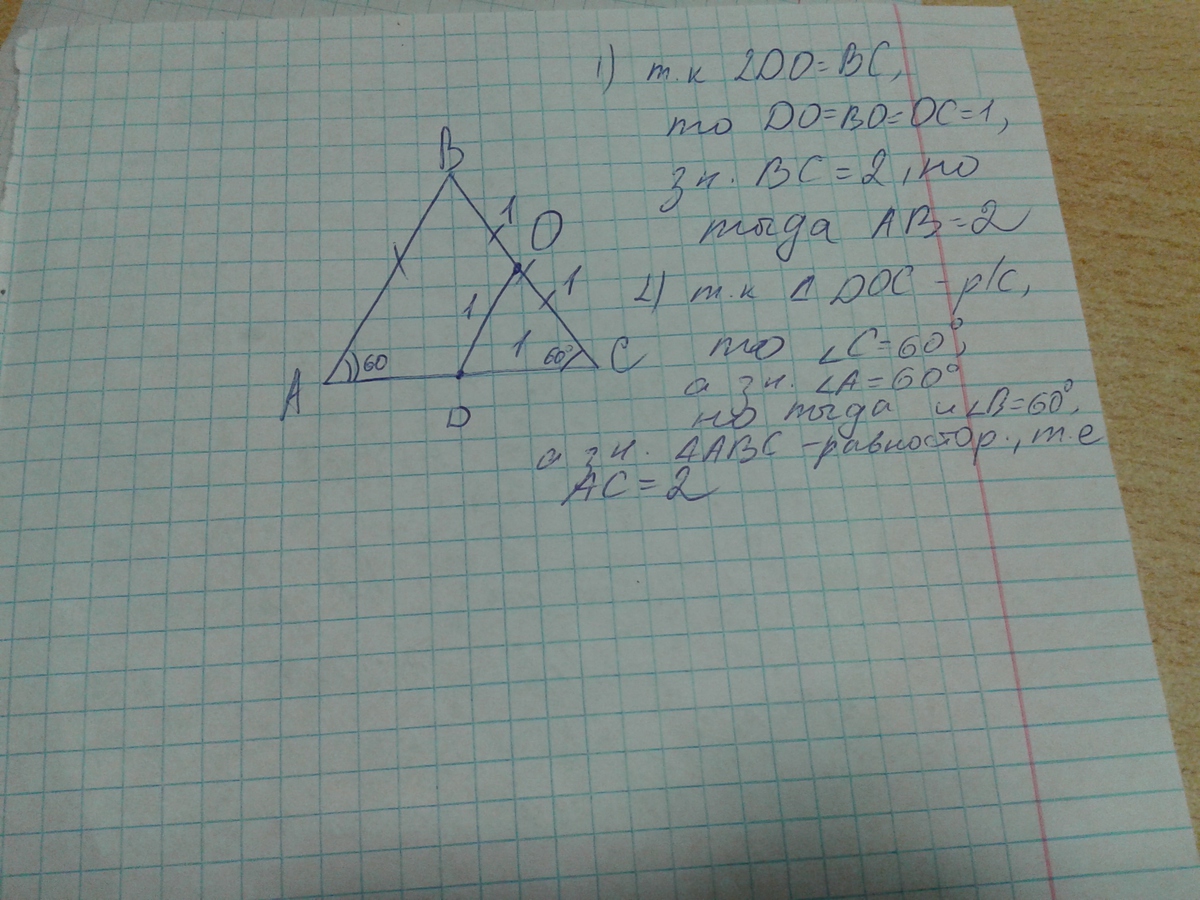 1) т.к 2DO=BC,
то DO=BO=OC=1,
зн. BC=2, но
тогда AB=2
2) т.к Δ DOC - р/с,
то ∠C=60°,
а зн. ∠A=60°
но тогда и ∠B=60°,
а зн. ΔABC -равностор., т.е
AC=2
B
1
O
1
1
1
60
60°
A
D
C